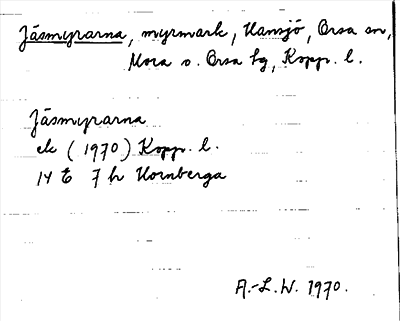 Jäsmyrarna, myrmark, Hansjö, Orsa sn,
Mora o. Orsa tg, Kopp. l.
Jäsmyrarna
ek (1970) Kopp. l.
14 E 7 h Hornberga
A.-L.W. 1970.